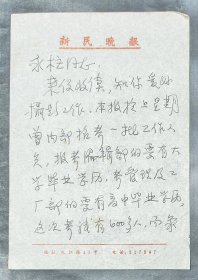 新民晚报
永柱同志：
来信收读，知你爱好
摄影工作。本报于上星期
曾内部招考一批工作人
员，报考编辑部的要有大
学毕业学历，考管理及工
厂部的要有高中毕业学历，
这次考试有600多人，而录